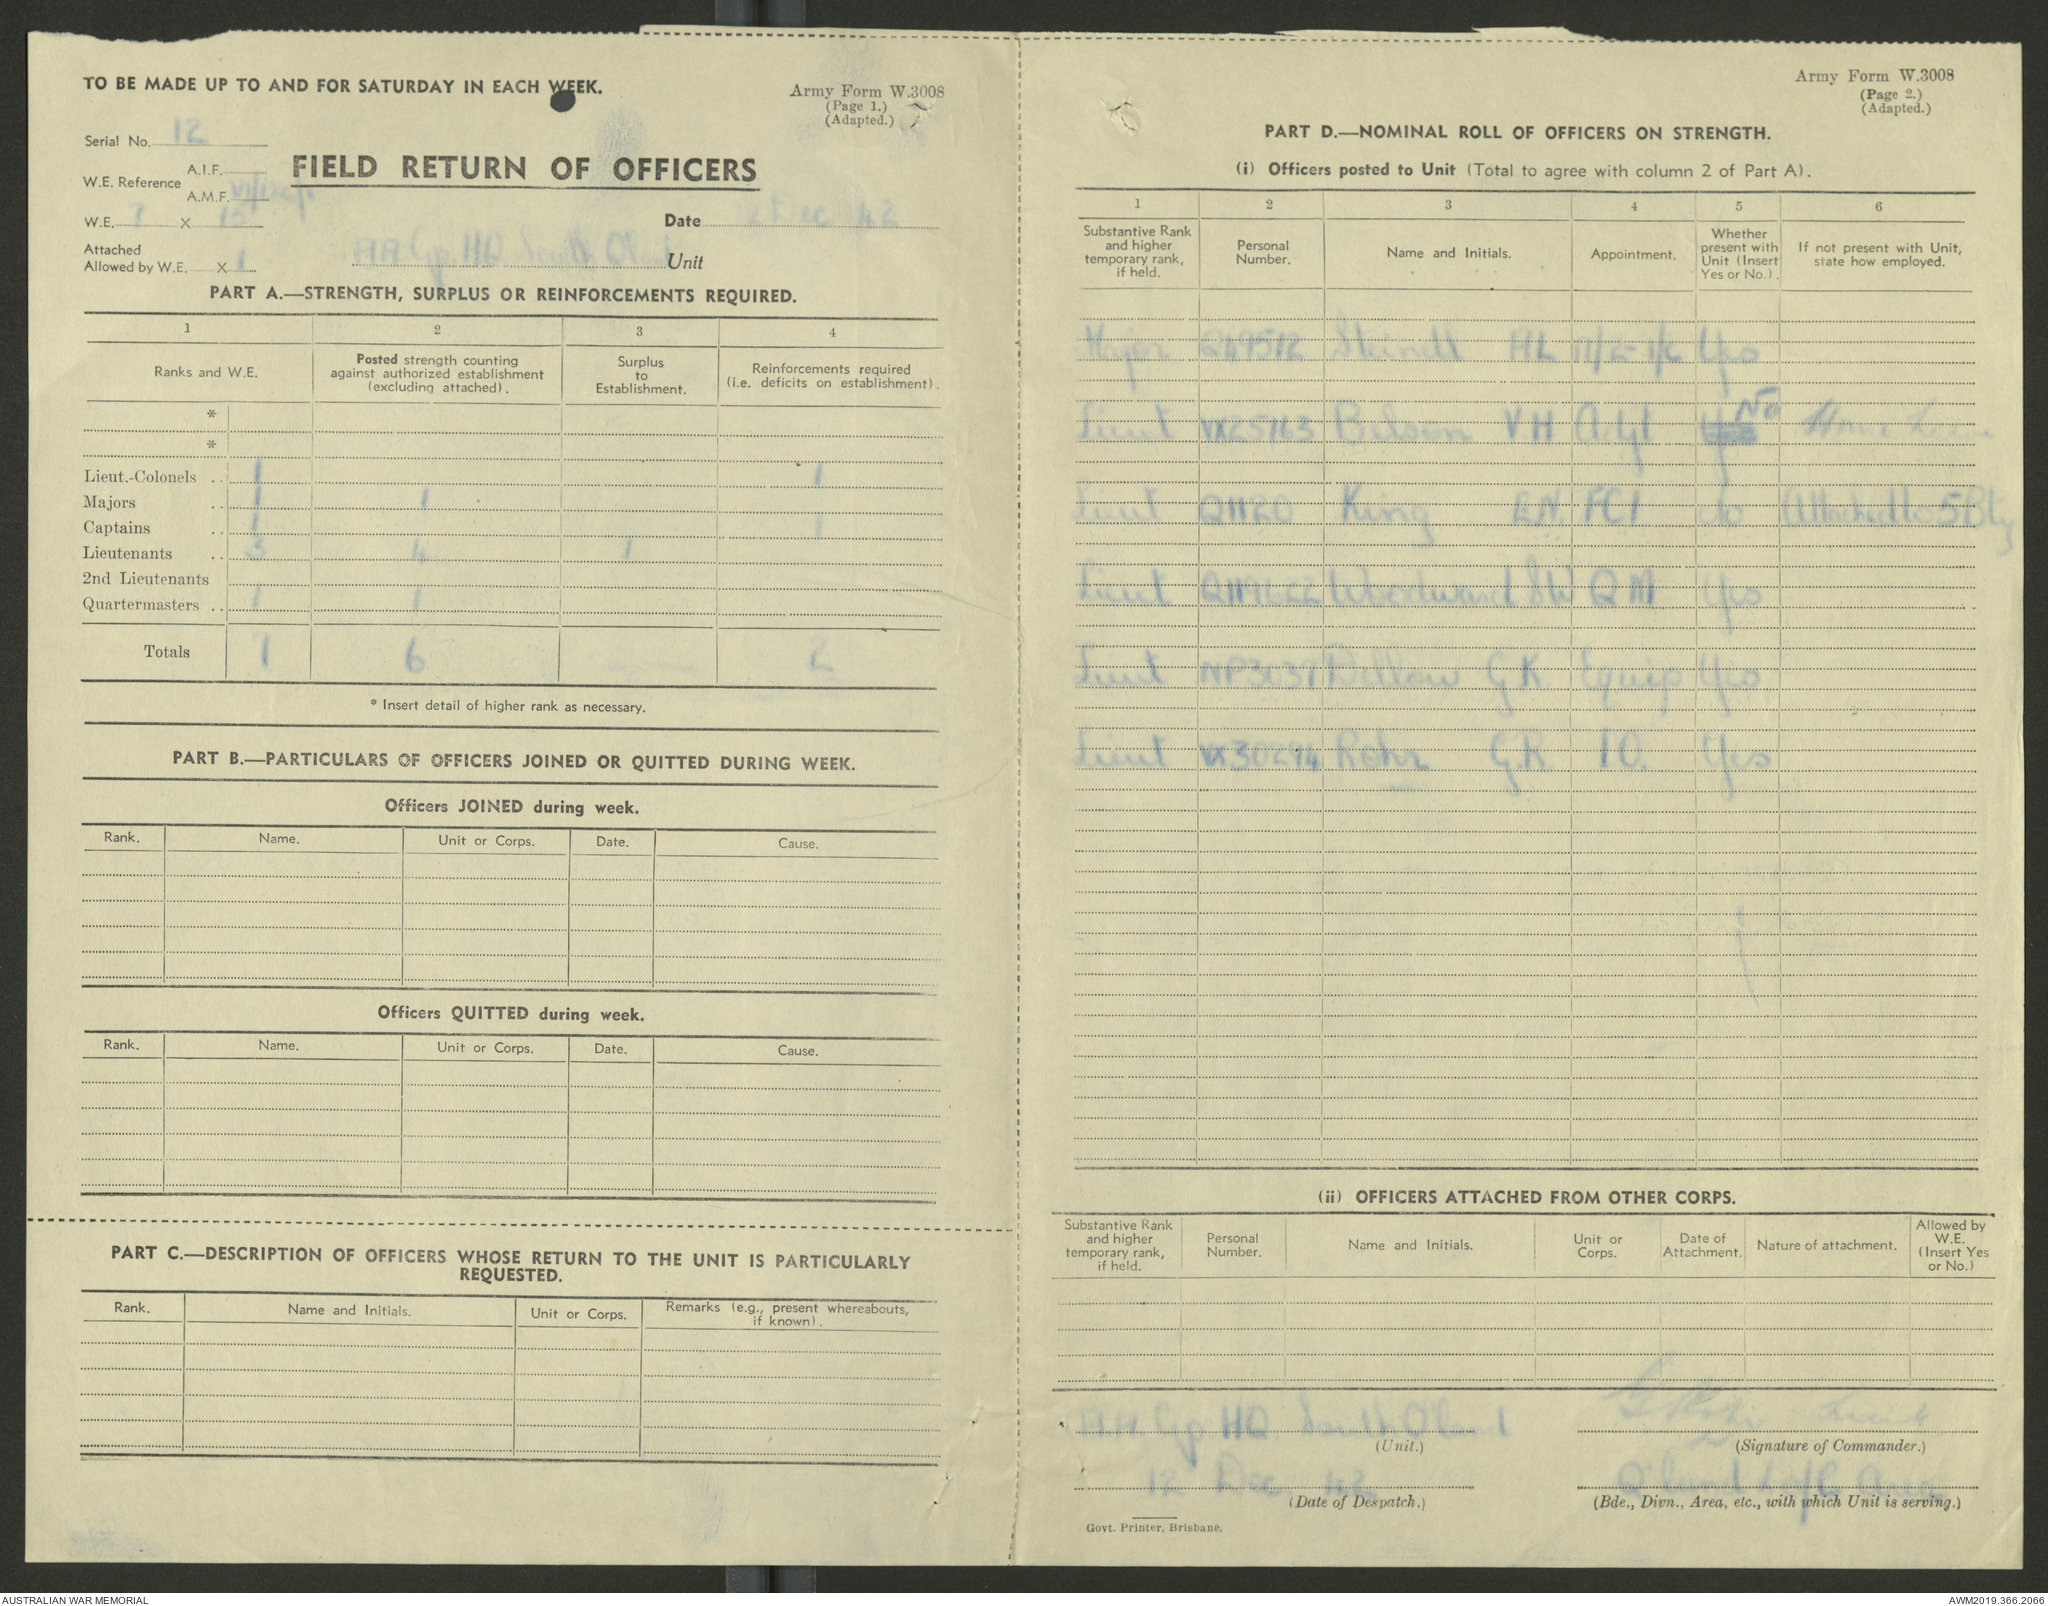 TO BE MADE UP TO AND FOR SATURDAY IN EACH WEEK.
Army Form W.3008
(Page 1.)
(Adapted.)
Serial No. 12
FIELD RETURN OF OFFICERS
W.E. Reference
A.I.F.
A.M.F.
W.E. 7 X 13
Date 12 Dec 42
Attached
Allowed by W.E. X 1
AA Gp HQ South Qland Unit
PART A.—STRENGTH, SURPLUS OR REINFORCEMENTS REQUIRED.
1 2 3 4
Ranks and W.E.
Posted strength counting
against authorized establishment
(excluding attached).
Surplus
to
Establishment.
Reinforcements required
(i.e. deficits on establishment).
*
*
Lieut.-Colonels .. 1 1
Majors .. 1 1
Captains .. 1 1
Lieutenants .. 3 4 1
2nd Lieutenants
Quartermasters .. 1 1
Totals 7 6 2
* Insert detail of higher rank as necessary.
PART B.—PARTICULARS OF OFFICERS JOINED OR QUITTED DURING WEEK.
Officers JOINED during week.
Rank. Name. Unit or Corps. Date. Cause.
Officers QUITTED during week.
Rank. Name. Unit or Corps. Date. Cause.
PART C.—DESCRIPTION OF OFFICERS WHOSE RETURN TO THE UNIT IS PARTICULARLY
REQUESTED.
Rank. Name and Initials. Unit or Corps. Remarks (e.g., present whereabouts,
if known).
Army Form W.3008
(Page 2.)
(Adapted.)
PART D.—NOMINAL ROLL OF OFFICERS ON STRENGTH.
(i) Officers posted to Unit (Total to agree with column 2 of Part A).
1 2 3 4 5 6
Substantive Rank
and higher
temporary rank,
if held.
Personal
Number.
Name and Initials.
Appointment.
Whether
present with
Unit (Insert
Yes or No.).
If not present with Unit,
state how employed.
Major AL Yes
Lieut VX25163 V H Adjt No Home Leave
Lieut Q1120 King E.N. FCI No Attached to 5 Bty
Lieut Woodward SW QM Yes
Lieut G.K. Equip Yes
Lieut VX30294 Rohr G.R. IO. Yes
(ii) OFFICERS ATTACHED FROM OTHER CORPS.
Substantive Rank
and higher
temporary rank,
if held.
Personal
Number.
Name and Initials.
Unit or
Corps.
Date of
Attachment.
Nature of attachment.
Allowed by
W.E.
(Insert Yes
or No.)
AA Gp HQ South Qland
(Unit.)
G Rohr Lieut
(Signature of Commander.)
12 Dec 42
(Date of Despatch.)
Q'land L of C Area
(Bde., Divn., Area, etc., with which Unit is serving.)
Govt. Printer, Brisbane.
AUSTRALIAN WAR MEMORIAL
AWM2019.366.2066